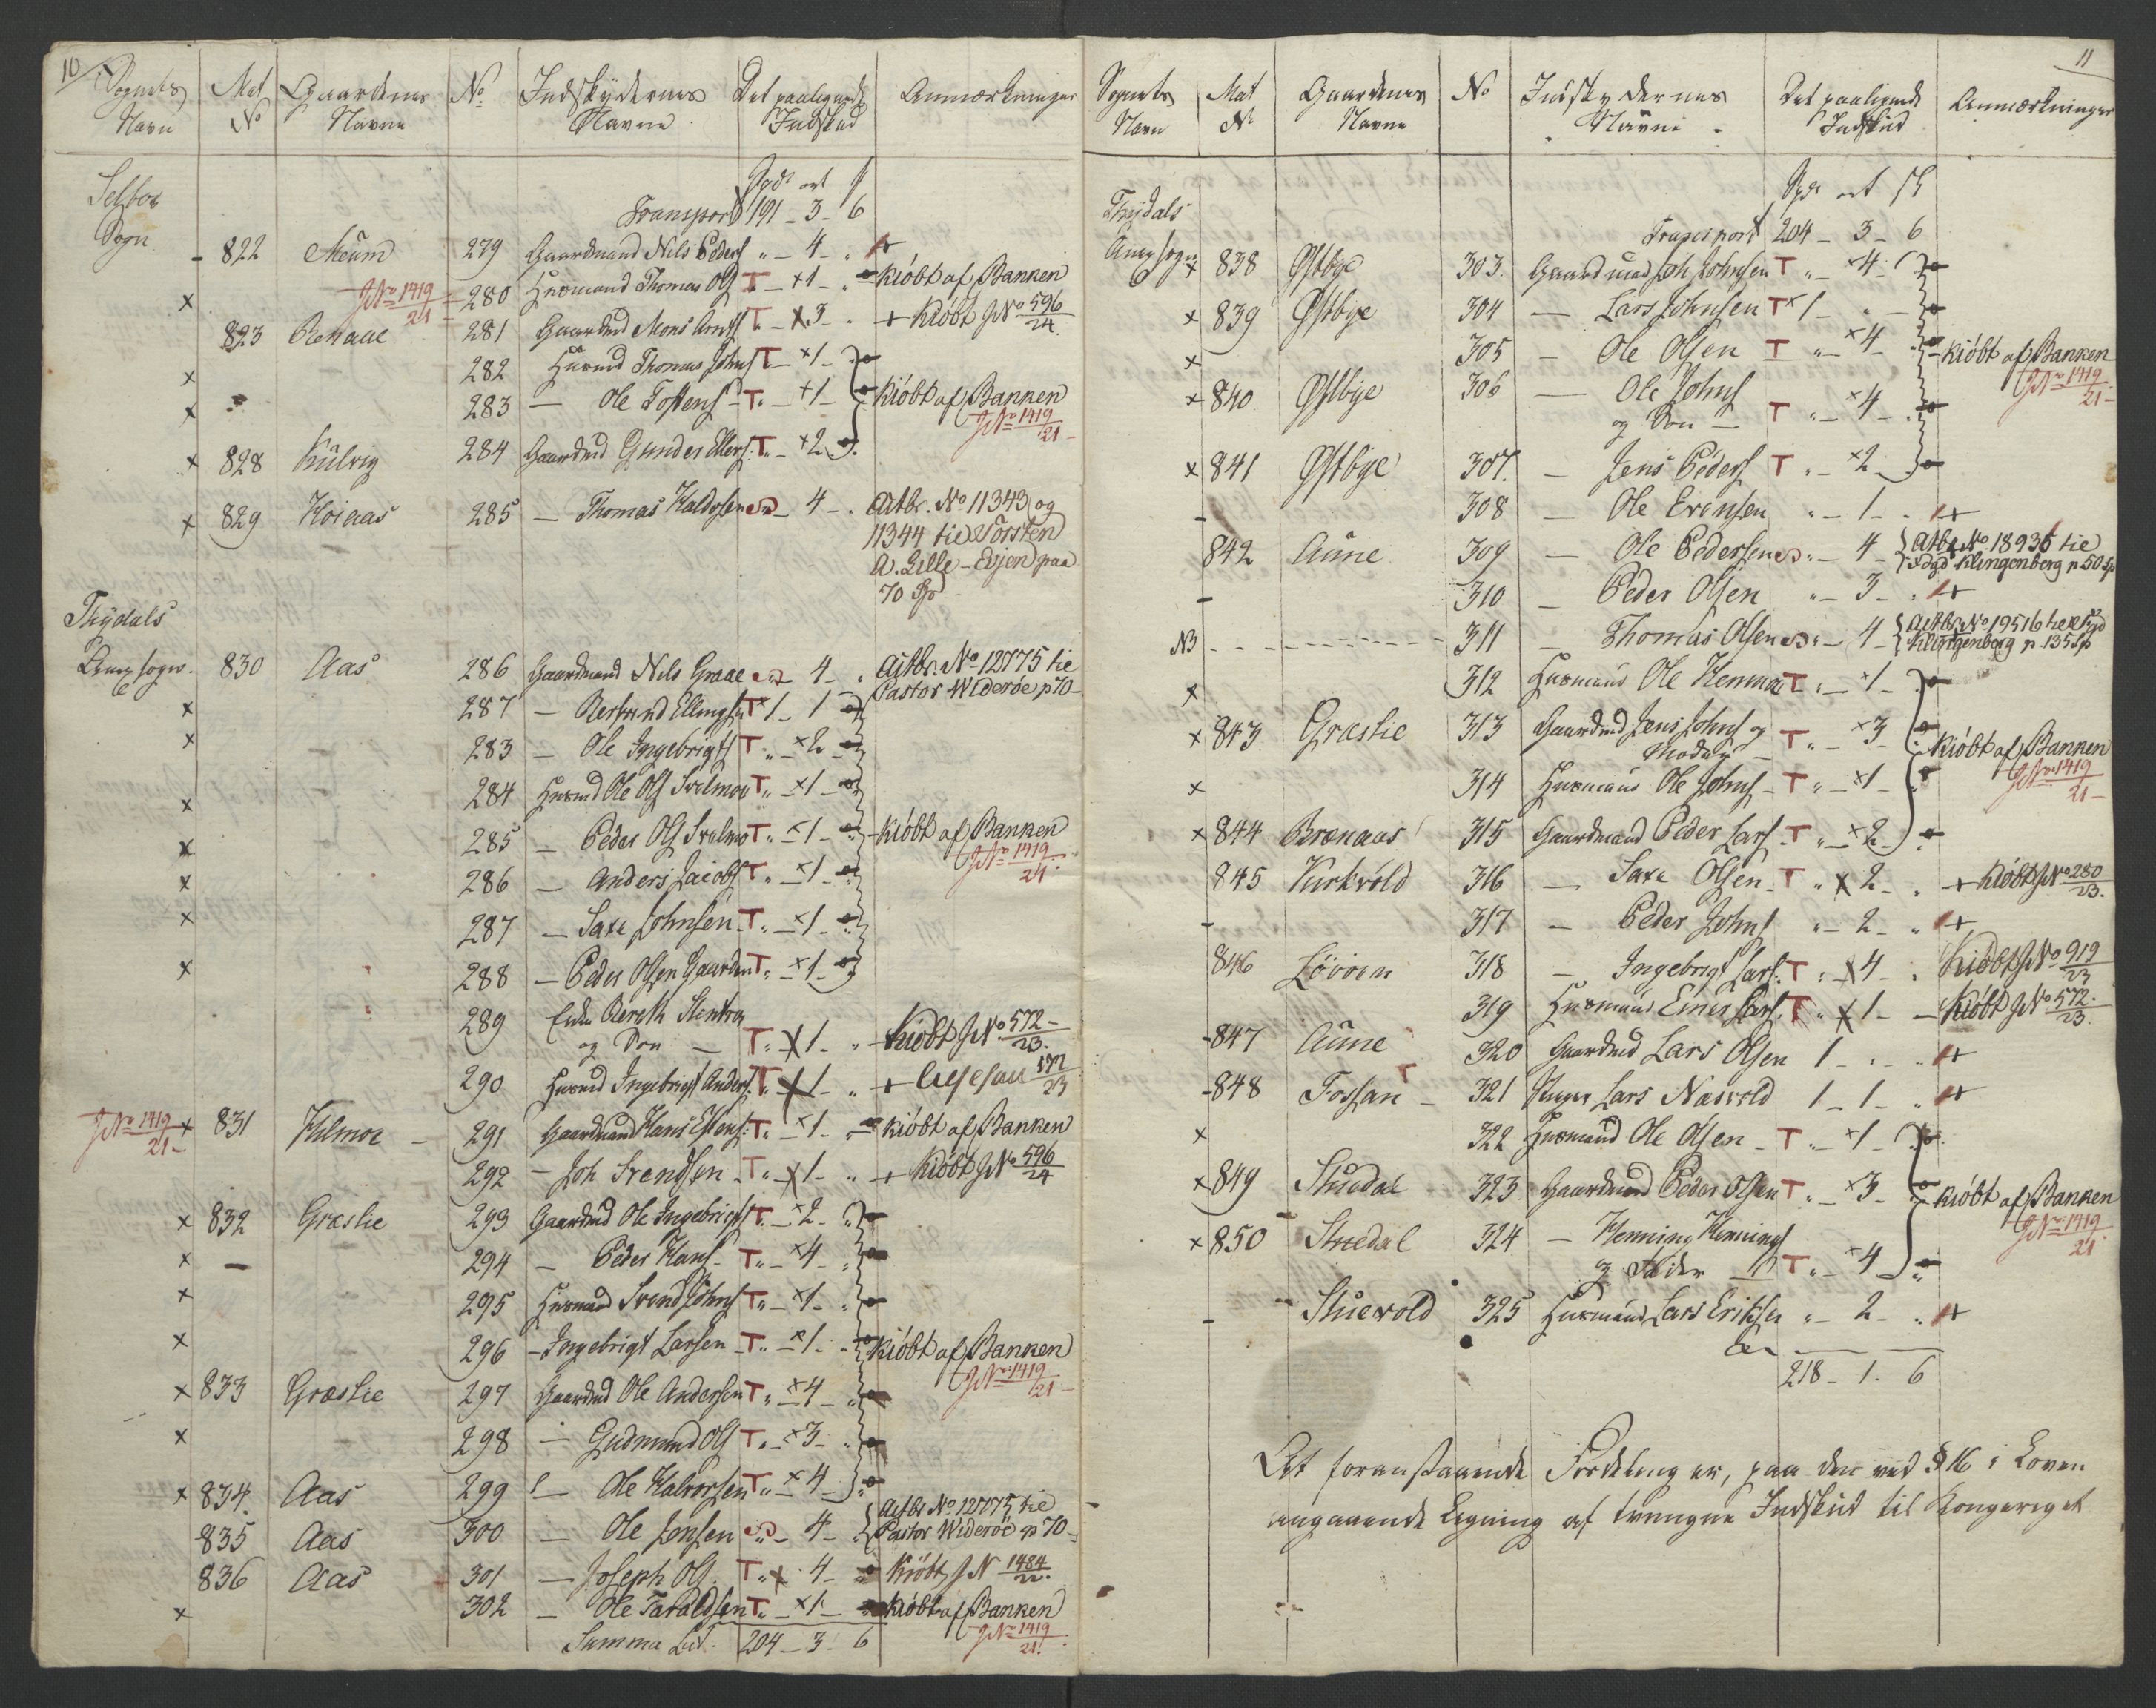 10
Sognets Navn | Mat No | Gaardenes Navne | No | Indskydernes Navne | Det paaligende Indskud | Anmærkninger
Spd ort ß
Selboe Sogn | Transport 191 - 3 - 6
822 Meum 279 Gaardmand Nils Peders " - 4 - " +
x JNo 1419/21 280 Huusmand Thomas Ols T - x1 - " Kiöbt af Banken
823 Renaae 281 Gaardmd Mons Arnts T - x3 - + Kiöbt JNo 596/24
x 282 Huusmd Thomas Johns T - x1 -
x 283 — Ole Tostens T " - x1 - Kiöbt af Banken
JNo 1419/21
x 828 Kulvig 284 Gaardmd Gunder Ellefs T " - x2
x 829 Hoiaas 285 — Thomas Haldosen - 4 - . Actbr. No 11343 og
11344 til Torsten
A. Lille-Evjen paa
70 Sp
Thydals
Anx sogn. 830 Aas 286 Gaardmand Nils Graae - 4 - . Actbr. No 12775 til
Pastor Widerøe p 70 -
x 287 — Bersvend Ellings T x1 - 1
x 283 — Ole Ingebrigts T " - x2
x 284 Huusmd Ole Ols T " - x1
x 285 — Peder Ols T " - x1 - Kiöbt af Banken
JNo 1419/21
x 286 — Anders Jacobs T " - x1
x 287 — Saxe Johnsen T " - x1
x 288 — Peder Olsen Gaarden T " - x1
289 Enken Bereth
og Søn — T " - x1 - " - Kiöbt JNo 572/23.
290 Huusmd Ingebrigt Anders T " - x1 - " + 572/23
JNo 1419/21 x 831 Kilmoe - 291 Gaardmand Hans Estens T " - x1 - " Kiöbt af Banken
292 — Joh Svendsen T " - x1 - " + Kiöbt JNo 596/24
x 832 Græslie 293 Gaardmd Ole Ingebrigts T " - x2 - "
x — 294 — Peder Hans - T " - x4 - "
x 295 Huusmand Svend Johns T " - x1 - "
x 296 — Ingebrigt Larsen T " - x1 - " Kiöbt af Banken
JNo 1419/21
x 833 Græslie 297 Gaardmd Ole Andersen T " - x4 - "
x 298 — Gudmund Ols T " - x3 - "
x 834. Aas 299 — Ole Halvorsen T " - x4 - "
835 Aas 300 — Ole Jensen " - 4 - Actbr No 12775 til
Pastor Widerøe p 70 -
836 Aas 301 — Joseph Ols. T " x 4 - Kiöbt JN 1484/22.
x 302 — Ole Taraldsen T " - x1 - Kiöbt af Banken
JNo 1419/21.
Summa Lat. 204 - 3 - 6
11
Sognets Navn | Mat No | Gaardenes Navne | No | Indskydernes Navne | Det paaligende Indskud | Anmærkninger
Spd ort ß
Thydals | Transport 204 - 3 - 6
Anx sogn x 838 Østbye 303. Gaardmand Joh Johnsen T " - x4 -
x 839 Østbye 304 — Lars Johnsen T x1 - " -
x 305 — Ole Olsen T " - x4 - Kiöbt af Banken
JNo 1419/21 -
x 840 Østbye 306 — Ole Johns
og Søn — T " - x4 -
x 841 Østbye 307. — Jens Peders T " - x2 -
- 308 — Ole Evensen " - 1 - . +
842 Aune 309 — Ole Pedersen " - 4 - Actbr No 18935 til
Klingenberg p 50 Sp
- 310 — Peder Olsen " - 3 - . +
NB - - - - 311 — Thomas Olsen " - 4 - Actbr. No 19516 til
Klingenberg p. 135 Sp
x 312 Huusmand Ole T " - x1 -
x 843 Græslie 313 Gaardmd Jens Johns og
T " - x3 - Kiöbt af Banken
JNo 1419/21 -
x 314 Huusmand Ole Johns - T " - x1 -
x 844 Brænaas 315 Gaardmand Peder Lars - T " - x2 -
845 Kirkvold 316 — Saxe Olsen - T " x 2 - " + Kiöbt JNo 280/23.
- 317 — Peder Johns " - 2 - " +
846 Løvøen 318 — Ingebrigt Lars. T " x4 - . Kiöbt JNo 919/23
319 Huusmand Einer Lars. T " x1 - - Kiöbt JNo 572/23.
- 847 Aune 320 Gaardmd Lars Olsen 1 - " - " +
- 848 Fossan - T 321 Lars Næsvold 1 - 1 - " +
x 322 Huusmand Ole Olsen - T " - x1 -
x 849 Stuedal 323 Gaardmand Peder Olsen T " - x3 - Kiöbt af Banken
JNo 1419/21
x 850 Stuedal 324 — Henning Hennings
og Fader — T " - x4 -
- Stuevold 325 Huusmand Lars Eriksen " - 2 - " +
218 - 1 - 6
At foranstaaende Fordeling er, paa den ved § 16 i Loven
angaaende Ligning af tvungne Indskud til Kongeriget